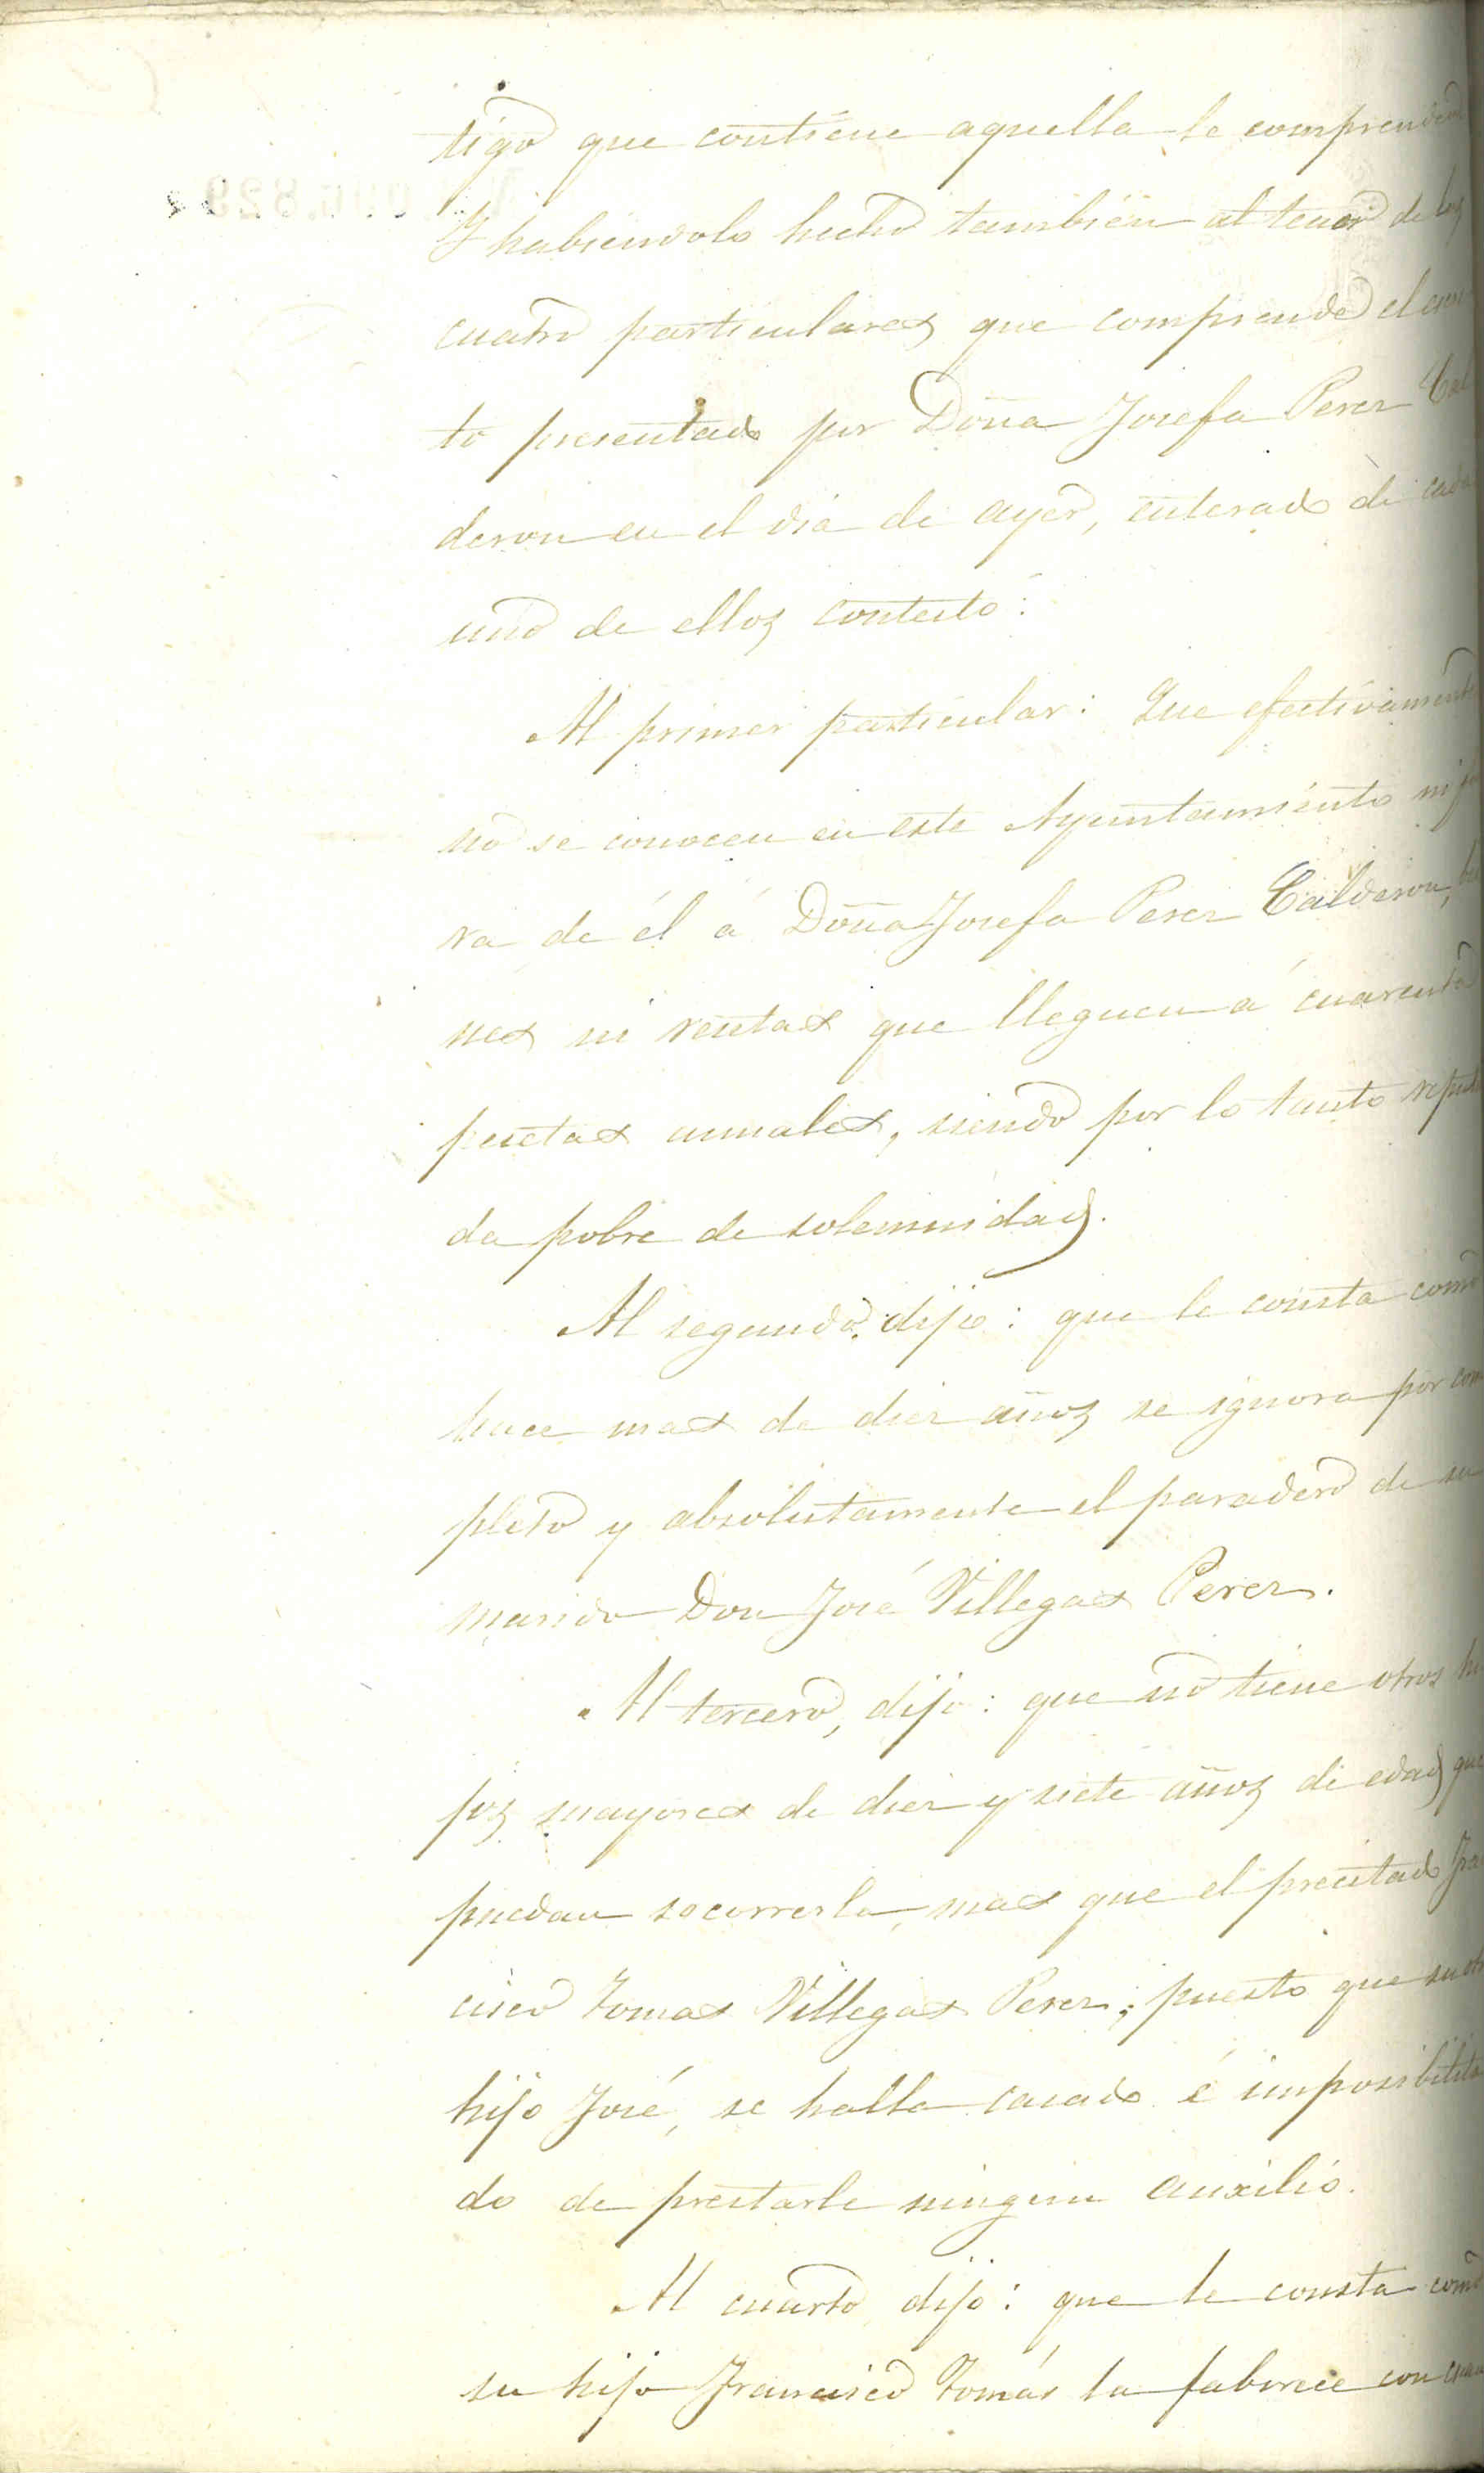 tigo que contiene aquella le comprenden
Y habiendolo hecho también al tenor de los
cuatro particulares que comprende el escri
to presentado por Doña Josefa Perez Cal
deron en el dia de ayer, enterado de cada
uno de ellos contestó:
Al primer particular: Que efectivamente
no se conocen en este Ayuntamiento ni fue
ra de él á Doña Josefa Perez Calderon, bie
nes ni rentas que lleguen á cuarenta
pesetas anuales, siendo por lo tanto reputa
da pobre de solemnidad.
Al segundo dijo: que le consta como
hace mas de diez años se ignora por com
pleto y absolutamente el paradero de su
marido Don José Villegas Perez.
Al tercero, dijo: que no tiene otros hi
jos mayores de diez y siete años de edad que
puedan socorrerla, mas que el precitado Fran
cisco Tomas Villegas Perez; puesto que su otro
hijo José, se halla casado é imposibilita
do de prestarle ningun auxilio.
Al cuarto dijo: que le consta como
su hijo Francisco Tomás la faborece con